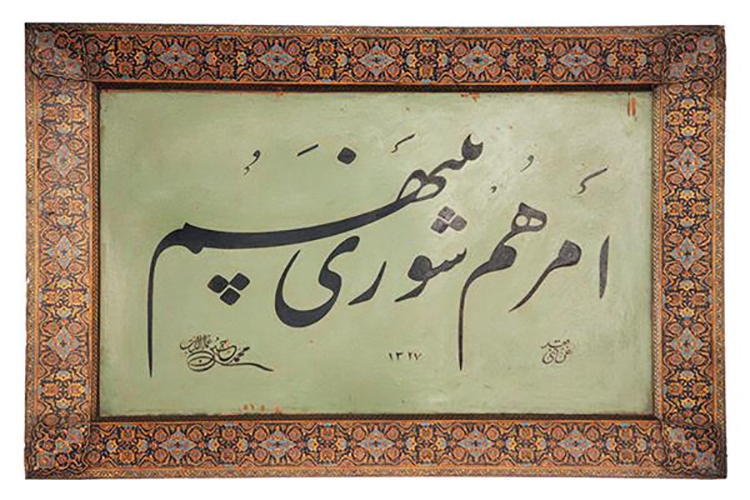 امرهم شوری بینهم
۱۳۲۷
محمد حسین عماد الکتاب